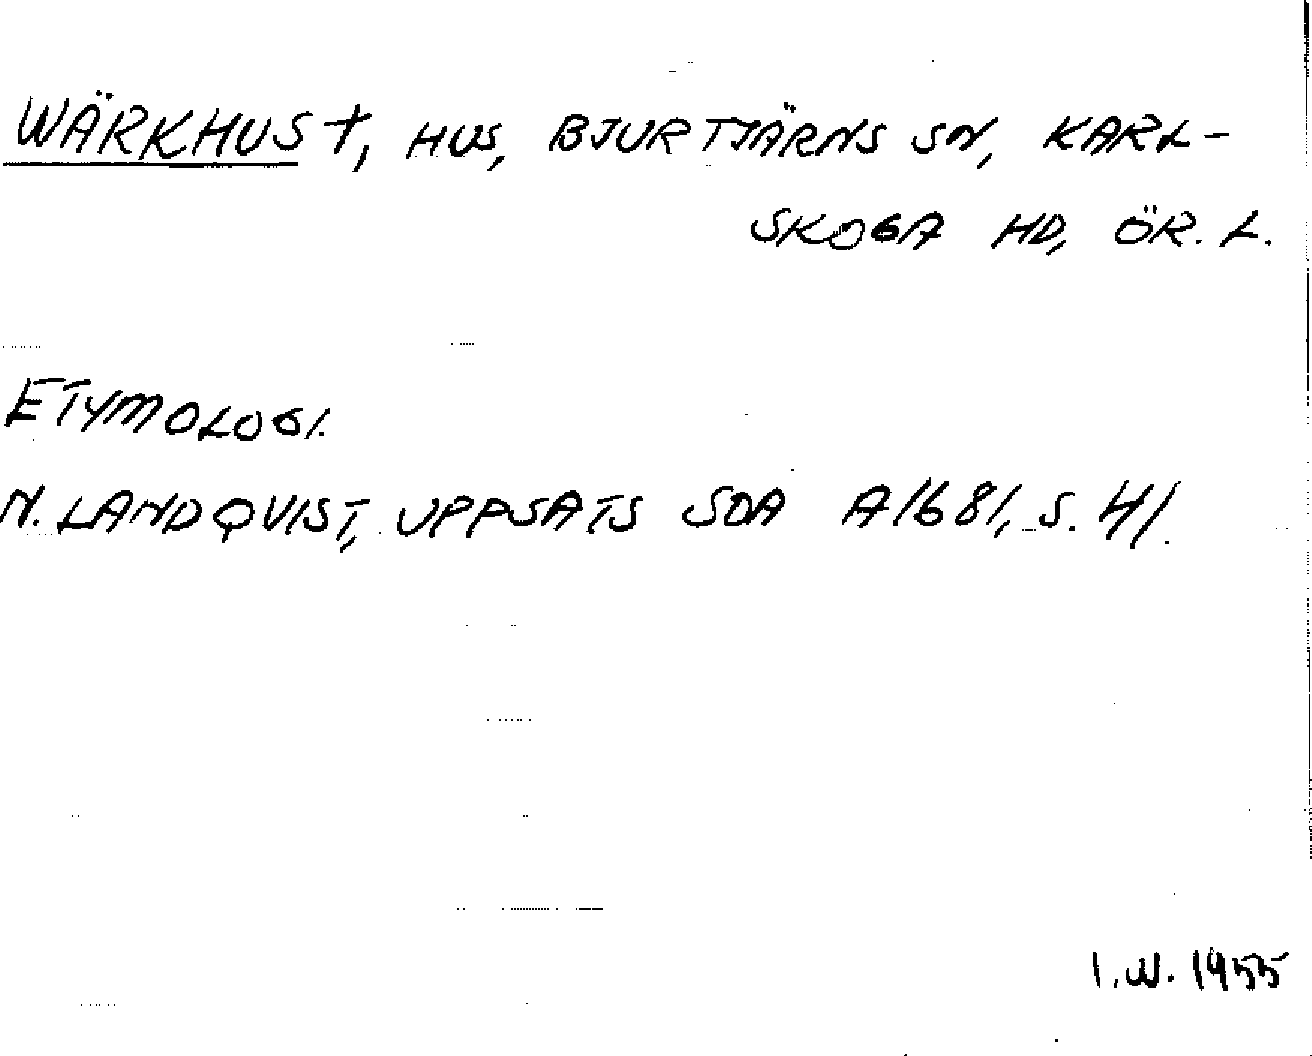 WÄRKHUS †, HUS, BJURTJÄRNS SN, KARL-
SKOGA HD, ÖR. L.
ETYMOLOGI.
N. LANDQVIST, UPPSATS SOA A1681, S. 41.
I.W. 1955